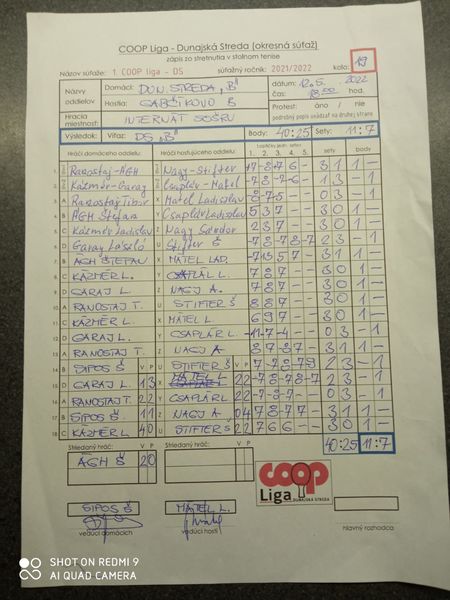 COOP Liga - Dunajská Streda (okresná súťaž)
zápis zo stretnutia v stolnom tenise
Názov súťaže: 1. COOP liga - DS súťažný ročník: 2021/2022 kolo: 19
Názvy oddielov Domáci: DUN. STREDA, "B" dátum: 12.5. 2022
Hostia: GABČÍKOVO B čas: 18:00 hod.
Hracia miestnosť: INTERNÁT SOŠRV Protest: áno / nie
podrobný popis uvádzať na druhej strane
Výsledok: Víťaz: DS "B" Body: 40:25 Sety: 11:7
Hráči domáceho oddielu: Hráči hosťujúceho oddielu: 1. 2. 3. 4. 5. sety body
1. Ranostaj - AGH Nagy - Stifter 3 1 1 -
2. Kázmér - Garay Csaplár - Matel 1 3 - 1
3. A Ranostaj Tibor X Matel Ladislav 3 0 1 -
4. B AGH Štefan Y Csaplár Ladislav 5 3 7 - - 3 0 1 -
5. C Kázmér Ladislav Z Nagy Sándor 2 3 7 - - 3 0 1 -
6. D Garay László U Stifter Š -7 8 -7 8 -7 2 3 - 1
7. B AGH ŠTEFAN X MATEL LAD. 3 1 1 -
8. C KÁZMÉR L. Y CSAPLÁR L. 7 8 7 - - 3 0 1 -
9. D GARAJ L. Z NAGJ A. 7 8 7 - - 3 0 1 -
10. A RANOSTAJ T. U STIFTER Š 8 8 7 - - 3 0 1 -
11. C KÁZMÉR L. X MATEL L. 6 9 7 - - 3 0 1 -
12. D GARAJ L. Y CSAPLÁR L. -11 -7 -4 - - 0 3 - 1
13. A RANOSTAJ T. Z NAGJ A. 3 1 1 -
14. B SIPOS Š V P U STIFTER Š V P 2 3 - 1
15. D GARAJ L. 1 3 X MATEL L. 2 2 -7 8 -7 8 -7 2 3 - 1
16. A RANOSTAJ T. 2 2 Y CSAPLÁR L. 2 2 0 3 - 1
17. B SIPOS Š 1 1 Z NAGJ A 0 4 3 1 1 -
18. C KÁZMÉR L. 4 0 U STIFTER Š 2 2 7 6 6 - - 3 0 1 -
40:25 11:7
Striedaný hráč: V P Striedaný hráč: V P
AGH Š 2 0
COOP
Liga
DUNAJSKÁ STREDA
SIPOS Š MATEL L.
vedúci domácich vedúci hostí hlavný rozhodca
SHOT ON REDMI 9
AI QUAD CAMERA